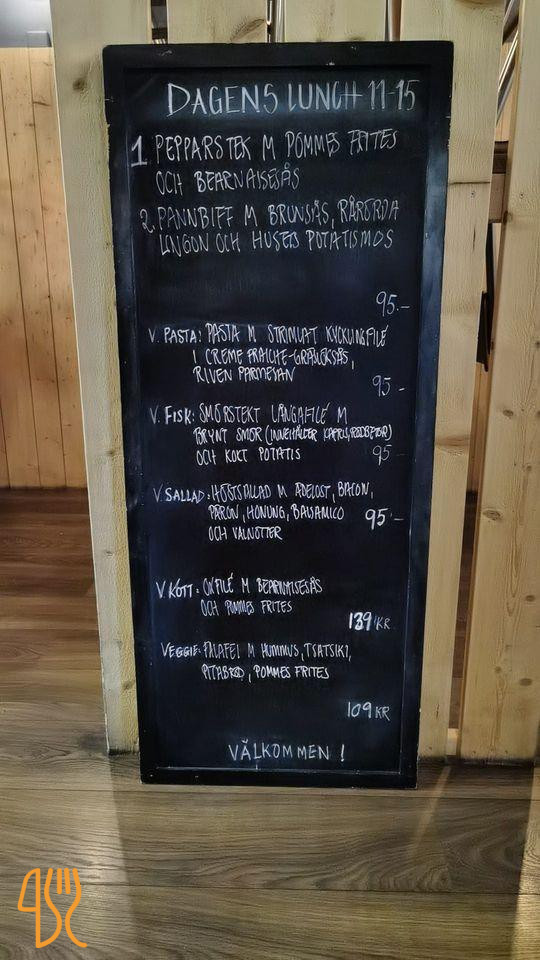 DAGENS LUNCH 11-15
1 PEPPARSTEK M POMMES FRITES
OCH BEARNAISESÅS
2. PANNBIFF M BRUNSÅS, RÅRÖRDA
LINGON OCH HUSETS POTATISMOS
95.-
V. PASTA: PASTA M STRIMLAT KYCKLINGFILÉ
I CREME FRAICHE-GRÄSLÖKSÅS,
RIVEN PARMESAN
95 -
V. FISK: SMÖRSTEKT LÅNGAFILÉ M
BRYNT SMÖR (INNEHÅLLER KAPRIS, RÖDBETOR)
OCH KOKT POTATIS
95.-
V. SALLAD: HÖSTSALLAD M ÄDELOST, BACON,
PÄRON, HONUNG, BALSAMICO
95.-
OCH VALNÖTTER
V. KÖTT: OXFILÉ M BEARNAISESÅS
OCH POMMES FRITES
139 KR
VEGGIE: FALAFEL M HUMMUS, TSATSIKI,
PITABRÖD, POMMES FRITES
109 KR
VÄLKOMMEN !